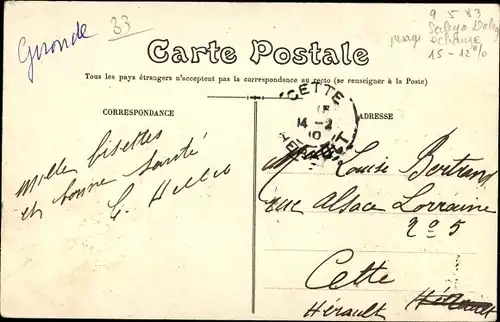 Gironde 33
9 5 83
échange
15 - 12%
Carte Postale
Tous les pays étrangers n'acceptent pas la correspondance au recto (se renseigner à la Poste)
CORRESPONDANCE
ADRESSE
CETTE
14 - 2
10
HERAULT
Mille bisettes
et bonne santé
Louise Bertrand
rue Alsace Lorraine
nº 5
Cette
Hérault Hérault